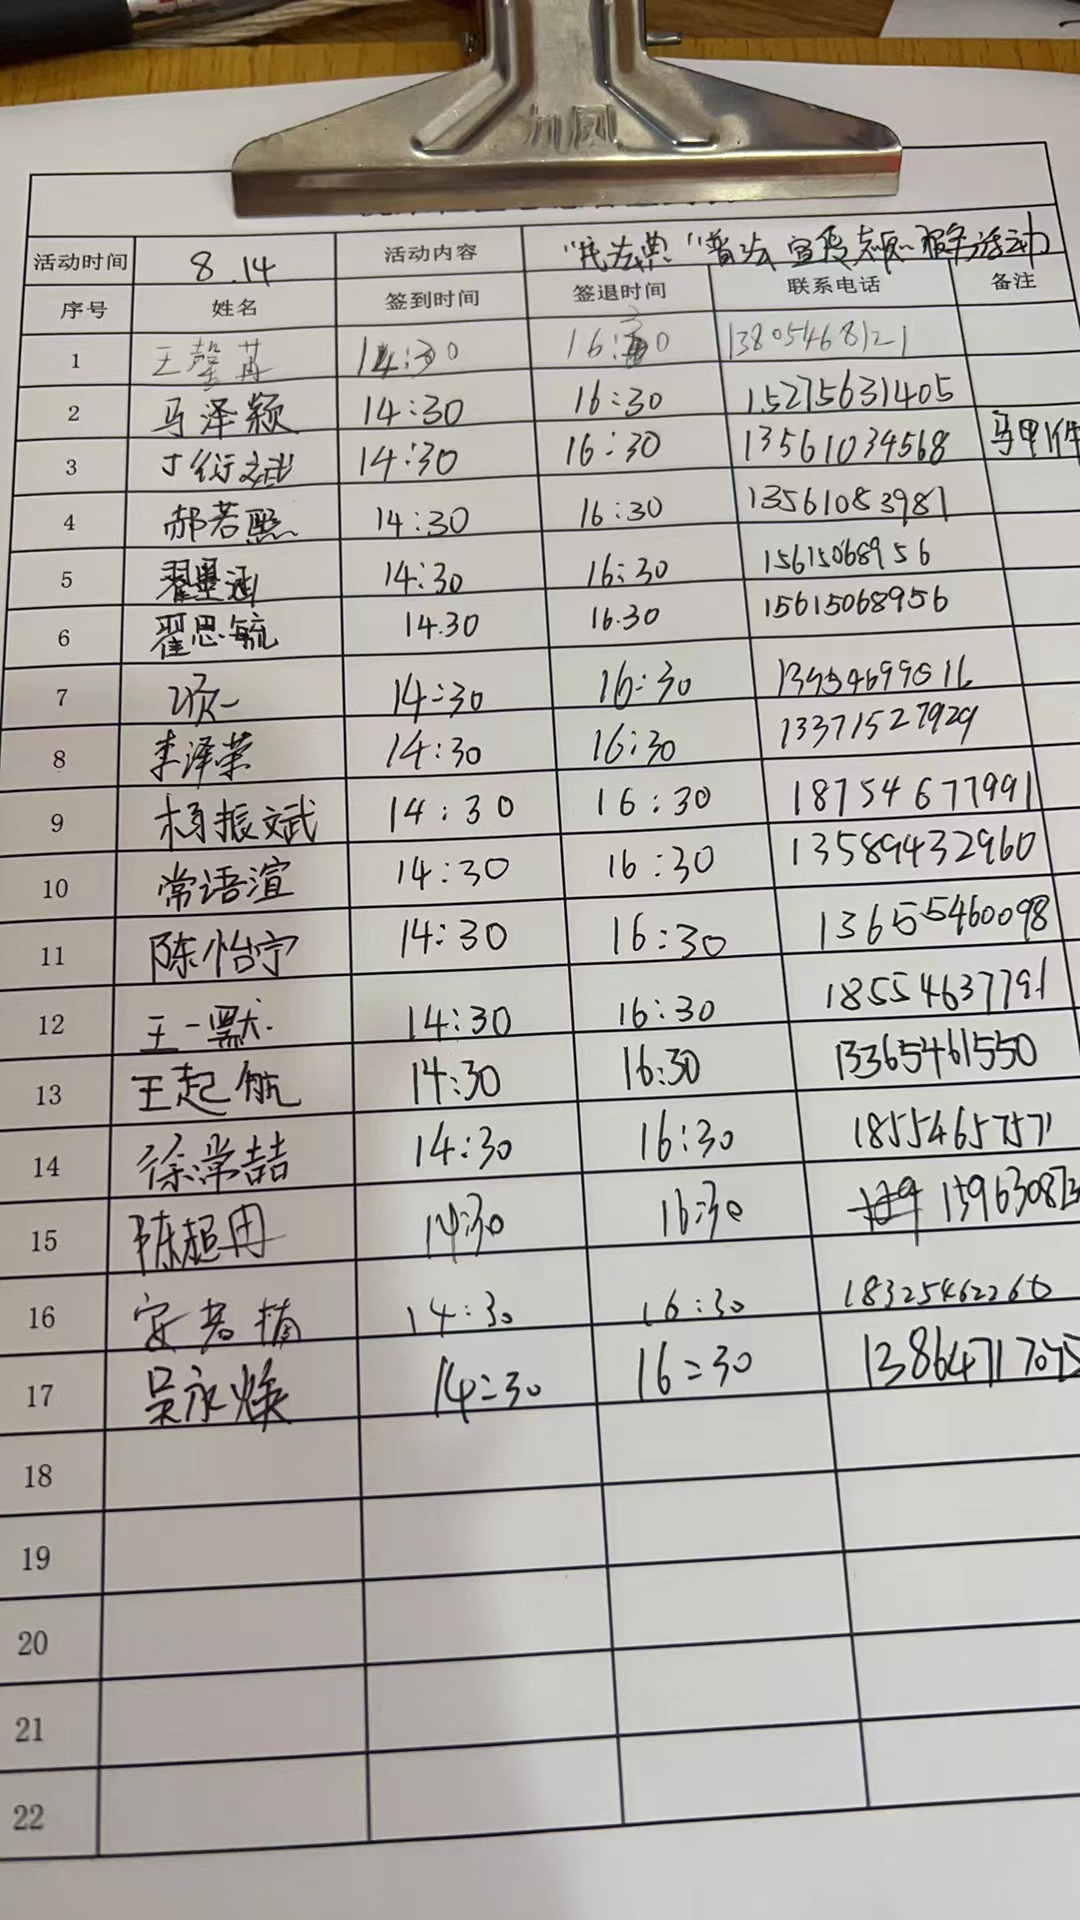 活动时间 8.14 活动内容 "民法典"普法宣传志愿服务活动
序号 姓名 签到时间 签退时间 联系电话 备注
1 王馨苒 14:30 16:30 13805468121
2 马泽颖 14:30 16:30 15275631405
3 丁衍文斌 14:30 16:30 13561034568 马甲1件
4 郝若熙 14:30 16:30 13561083981
5 翟墨涵 14:30 16:30 15615068956
6 翟思毓 14.30 16.30 15615068956
7 14:30 16:30
8 李泽荣 14:30 16:30 13371527929
9 杨振斌 14:30 16:30 18754677991
10 常语渲 14:30 16:30 13589432960
11 陈怡宁 14:30 16:30 13655460098
12 王一默 14:30 16:30 18554637791
13 王起航 14:30 16:30 13365461550
14 徐常喆 14:30 16:30 18554657571
15 陈超冉 14:30 16:30 15963087
16 安若楠 14:30 16:30 18325462260
17 吴永焕 14:30 16:30
18
19
20
21
22